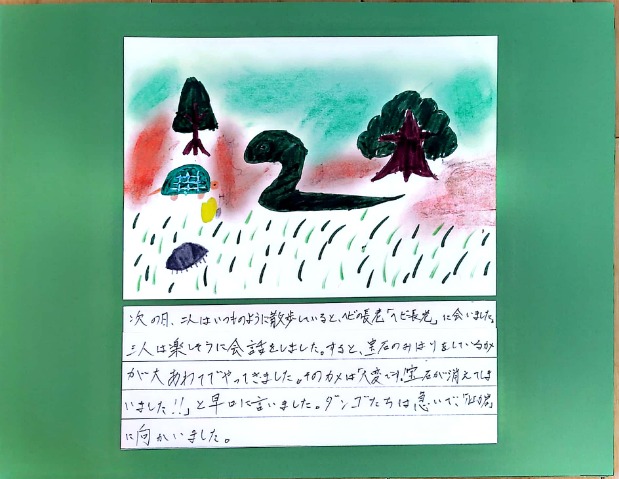 次の日、二人はいつものように散歩していると、ヘビの長老「ヘビ長老」に会いました。
三人は楽しそうに会話をしました。すると、宝石のみはりをしているカメ
が大あわてでやってきました。そのカメは「大変です、宝石が消えてしま
いました!!」と早口に言いました。ダンゴたちは急いで、
に向かいました。